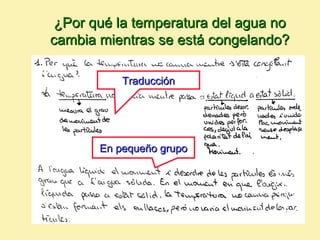 ¿Por qué la temperatura del agua no
cambia mientras se está congelando?
1. Per què la temperatura no canvia mentre s'està congelant
l'aigua?
Traducción
la temperatura no canvia mentre passa
a estat líquid a estat sòlid.
mesura el grau
de moviment de
les partícules
partícules desor
denades però
unides per for
ces, degut a la
moviment.
partícules
En pequeño grupo
A l'aigua líquida el moviment i desordre de les partícules és més
gran que a l'aigua sòlida. En el moment en que l'aigua
líquida passa a estat sòlid, la temperatura no canvia perquè
s'estan formant els enllaços, però no varia el moviment de les par-
tícules.